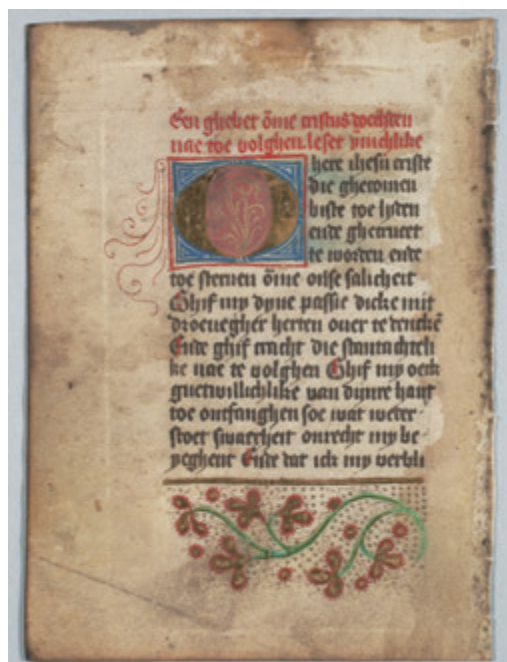 Een ghebet õme cristus voetstē
nae toe volghen. leset ỹnichlike
O here ihesu criste
die ghecomen
biste toe lyden
ende ghecruert
te worden ende
toe sterven õme onse salicheit
Ghif my dyne passie dicke mit
droevegher herten over te denckē
Ende ghif cracht die stantachteli
ke nae te volghen Ghif my oeck
guetwillichlike van dynre hant
toe ontfanghen soe wat weder
stoet swaerheit onrecht my be
yeghent Ende dat ick my verbli